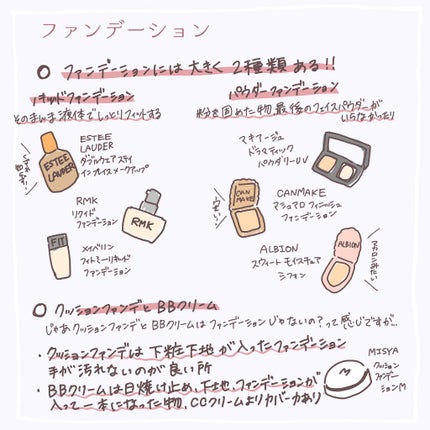 ファンデーション
○ ファンデーションには大きく2種類ある!!
リキッドファンデーション
そのまんま液体でしっとりフィットする
パウダーファンデーション
粉を固めた物 最後のフェイスパウダーが
いらなかったり
ESTEE
LAUDER
ダブルウェア ステイ
イン プレイス メークアップ
ESTEE
LAUDER
RMK
リクイド
ファンデーション
RMK
メイベリン
フィットミーリキッド
ファンデーション
FIT
マキアージュ
ドラマティック
パウダリーUV
CANMAKE
マシュマロフィニッシュ
ファンデーション
CAN
MAKE
ALBION
スウィートモイスチュア
シフォン
ALBION
マカロンみたい
○ クッションファンデとBBクリーム
じゃあクッションファンデとBBクリームはファンデーションじゃないの?って感じですが…
・クッションファンデは下粧下地が入ったファンデーション
手が汚れないのが良い所
・BBクリームは日焼け止め、下地、ファンデーションが
入って一本になった物、CCクリームよりカバー力あり
MISYA
クッション
ファンデー
ションM
M